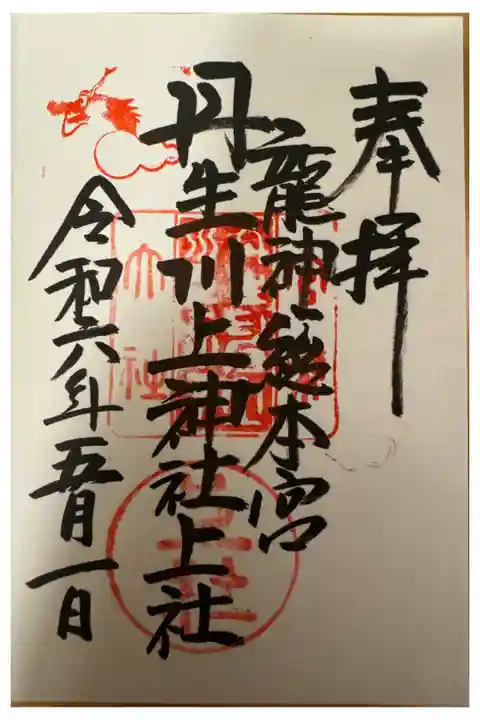 奉拝
龍神總本宮
丹生川上神社上社
令和六年五月一日
大社